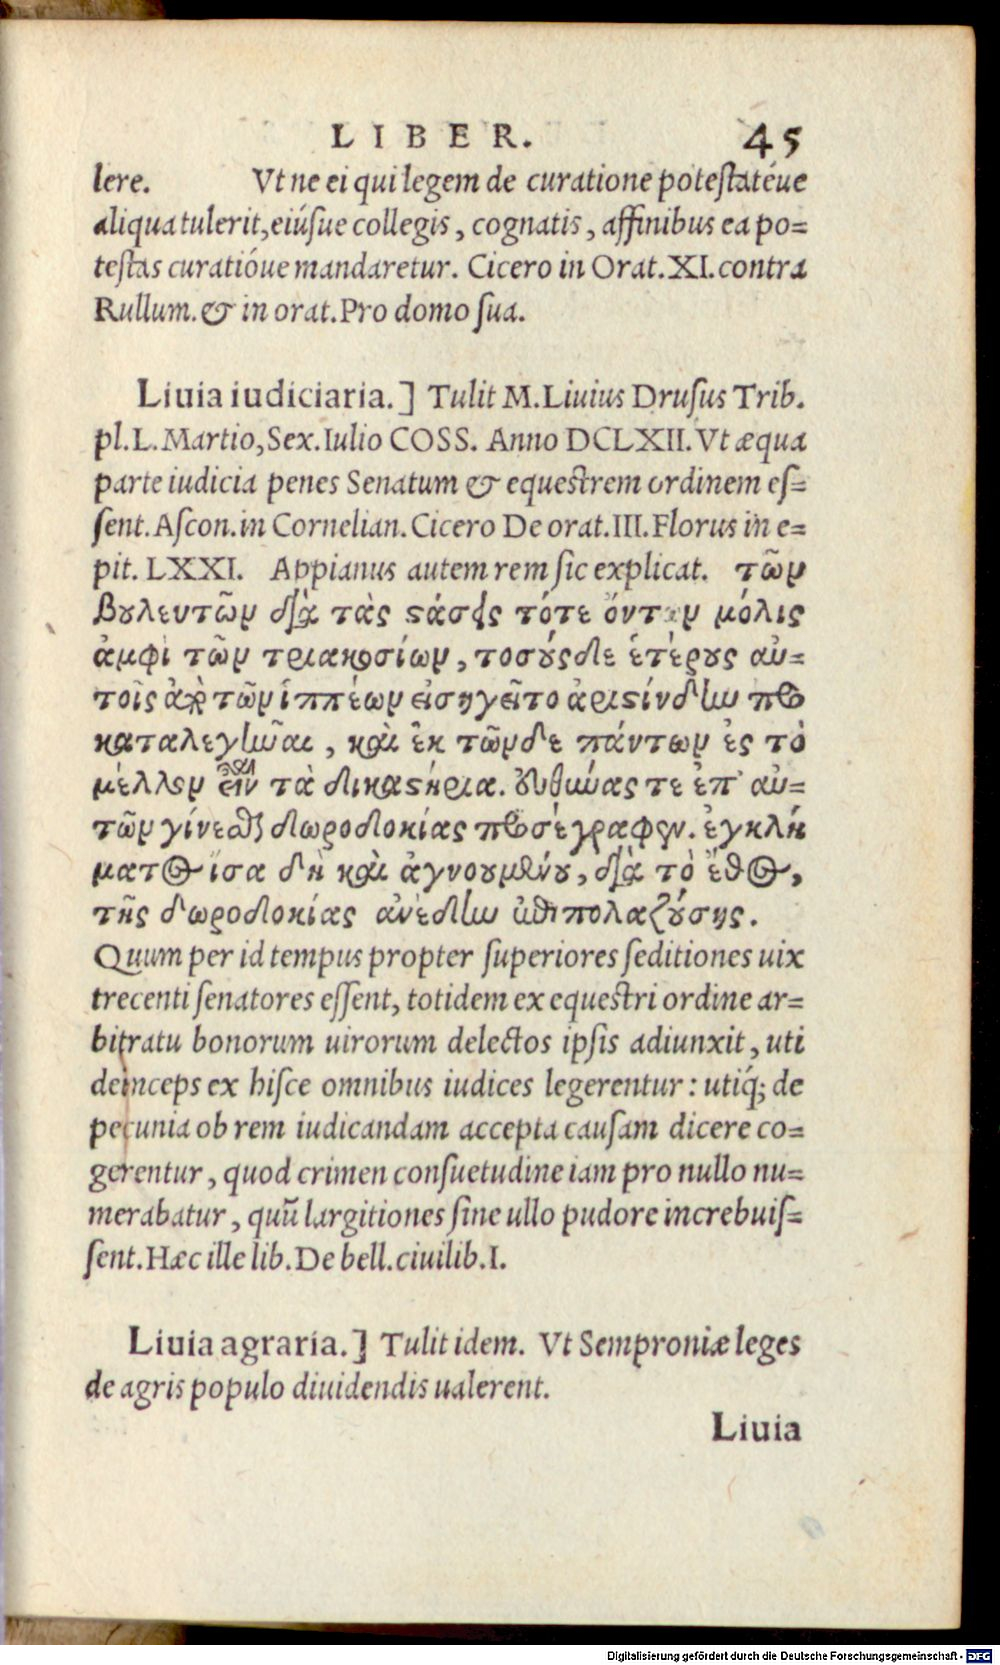 LIBER. 45
lere. Vt ne ei qui legem de curatione potestatéue
aliqua tulerit, eiúsue collegis, cognatis, affinibus ea po=
testas curatióue mandaretur. Cicero in Orat. XI. contra
Rullum. & in orat. Pro domo sua.
Liuia iudiciaria.] Tulit M. Liuius Drusus Trib.
pl. L. Martio, Sex. Iulio COSS. Anno DCLXII. Vt æqua
parte iudicia penes Senatum & equestrem ordinem es=
sent. Ascon. in Cornelian. Cicero De orat. III. Florus in e=
pit. LXXI. Appianus autem rem sic explicat. τῶν
βουλευτῶν διὰ τὰς στάσεις τότε ὄντων μόλις
ἀμφὶ τῶν τριακοσίων, τοσούςδε ἑτέρους αὐ=
τοῖς ἀπὸ τῶν ἱππέων εἰσηγεῖτο ἀριστίνδην προσ
καταλεγῆναι, καὶ ἐκ τῶνδε πάντων ἐς τὸ
μέλλον εἶναι τὰ δικαστήρια. εὐθύνας τε ἐπ' αὐ=
τῶν γίνεσθαι δωροδοκίας προσέγραφεν. ἐγκλή
ματος ἴσα δὴ καὶ ἀγνουμένου, διὰ τὸ ἔθος,
τῆς δωροδοκίας ἀνέδην ἐπιπολαζούσης.
Quum per id tempus propter superiores seditiones uix
trecenti senatores essent, totidem ex equestri ordine ar=
bitratu bonorum uirorum delectos ipsis adiunxit, uti
deinceps ex hisce omnibus iudices legerentur: utiq́; de
pecunia ob rem iudicandam accepta causam dicere co=
gerentur, quod crimen consuetudine iam pro nullo nu=
merabatur, quū largitiones sine ullo pudore increbuis=
sent. Hæc ille lib. De bell. ciuilib. I.
Liuia agraria.] Tulit idem. Vt Semproniæ leges
de agris populo diuidendis ualerent.
Liuia
Digitalisierung gefördert durch die Deutsche Forschungsgemeinschaft - DFG